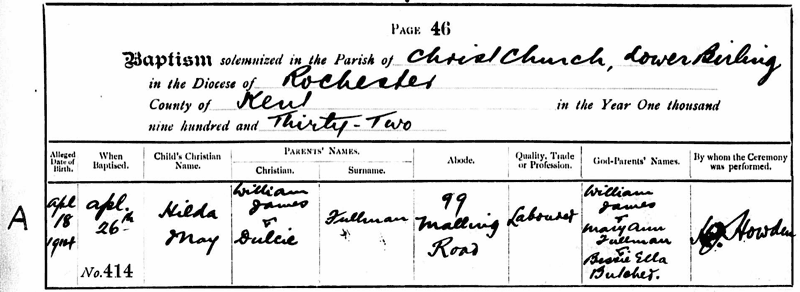 PAGE 46
Baptism solemnized in the Parish of Christ Church, Lower Birling
in the Diocese of Rochester
County of Kent in the Year One thousand
nine hundred and Thirty-Two
Alleged Date of Birth.
When Baptised.
Child's Christian Name.
PARENTS' NAMES.
Christian.
Surname.
Abode.
Quality, Trade or Profession.
God-Parents' Names.
By whom the Ceremony was performed.
A
Apl
18
Apl.
26th
No. 414
Hilda
May
William
James
+
Dulcie
Fullman
99
Malling
Road
Labourer
William
James
+
Mary Ann
Fullman
+
Bessie Ella
Butcher.
Howden